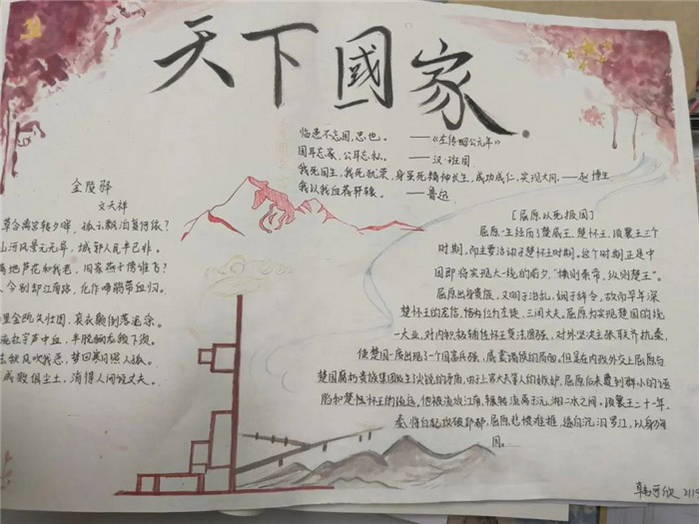 天下國家
临患不忘国，忠也。——《左传昭公元年》
国耳忘家，公耳忘私。——汉·班固
我死国生，我死犹荣，身虽死精神长生，成功成仁，实现大同。——赵博生
我以我血荐轩辕。——鲁迅
金陵驿
文天祥
草合离宫转夕晖，孤云飘泊复何依？
山河风景元无异，城郭人民半已非。
满地芦花和我老，旧家燕子傍谁飞？
今别却江南路，化作啼鹃带血归。
里金瓯失壮图，衮衣颠倒落泥涂。
流杜宇声中血，半脱骊龙颔下须。
秋风吹我忍，梦回寒月照人孤。
成败俱尘土，消得人间说丈夫。
[屈原以死报国]
屈原一生经历了楚威王、楚怀王、顷襄王三个
时期，而主要活动于楚怀王时期。这个时期正是中
国即将实现大一统的前夕，“横则秦帝，纵则楚王”。
屈原出身贵族，又明于治乱，娴于辞令，故而早年深
楚怀王的宠信，位为左徒、三闾大夫。屈原为实现楚国的统
一大业，对内积极辅佐怀王变法图强，对外坚决主张联齐抗秦，
使楚国一度出现了一个国富兵强、威震诸侯的局面。但是在内政外交上屈原与
楚国腐朽贵族集团发生了尖锐的矛盾，由于上官大夫等人的嫉妒，屈原后来遭到群小的诬
陷和楚怀王的疏远。他被流放江南，辗转流离于沅、湘二水之间。顷襄王二十一年，
秦将白起攻破郢都，屈原悲愤难捱，遂自沉汨罗江，以身殉
国。